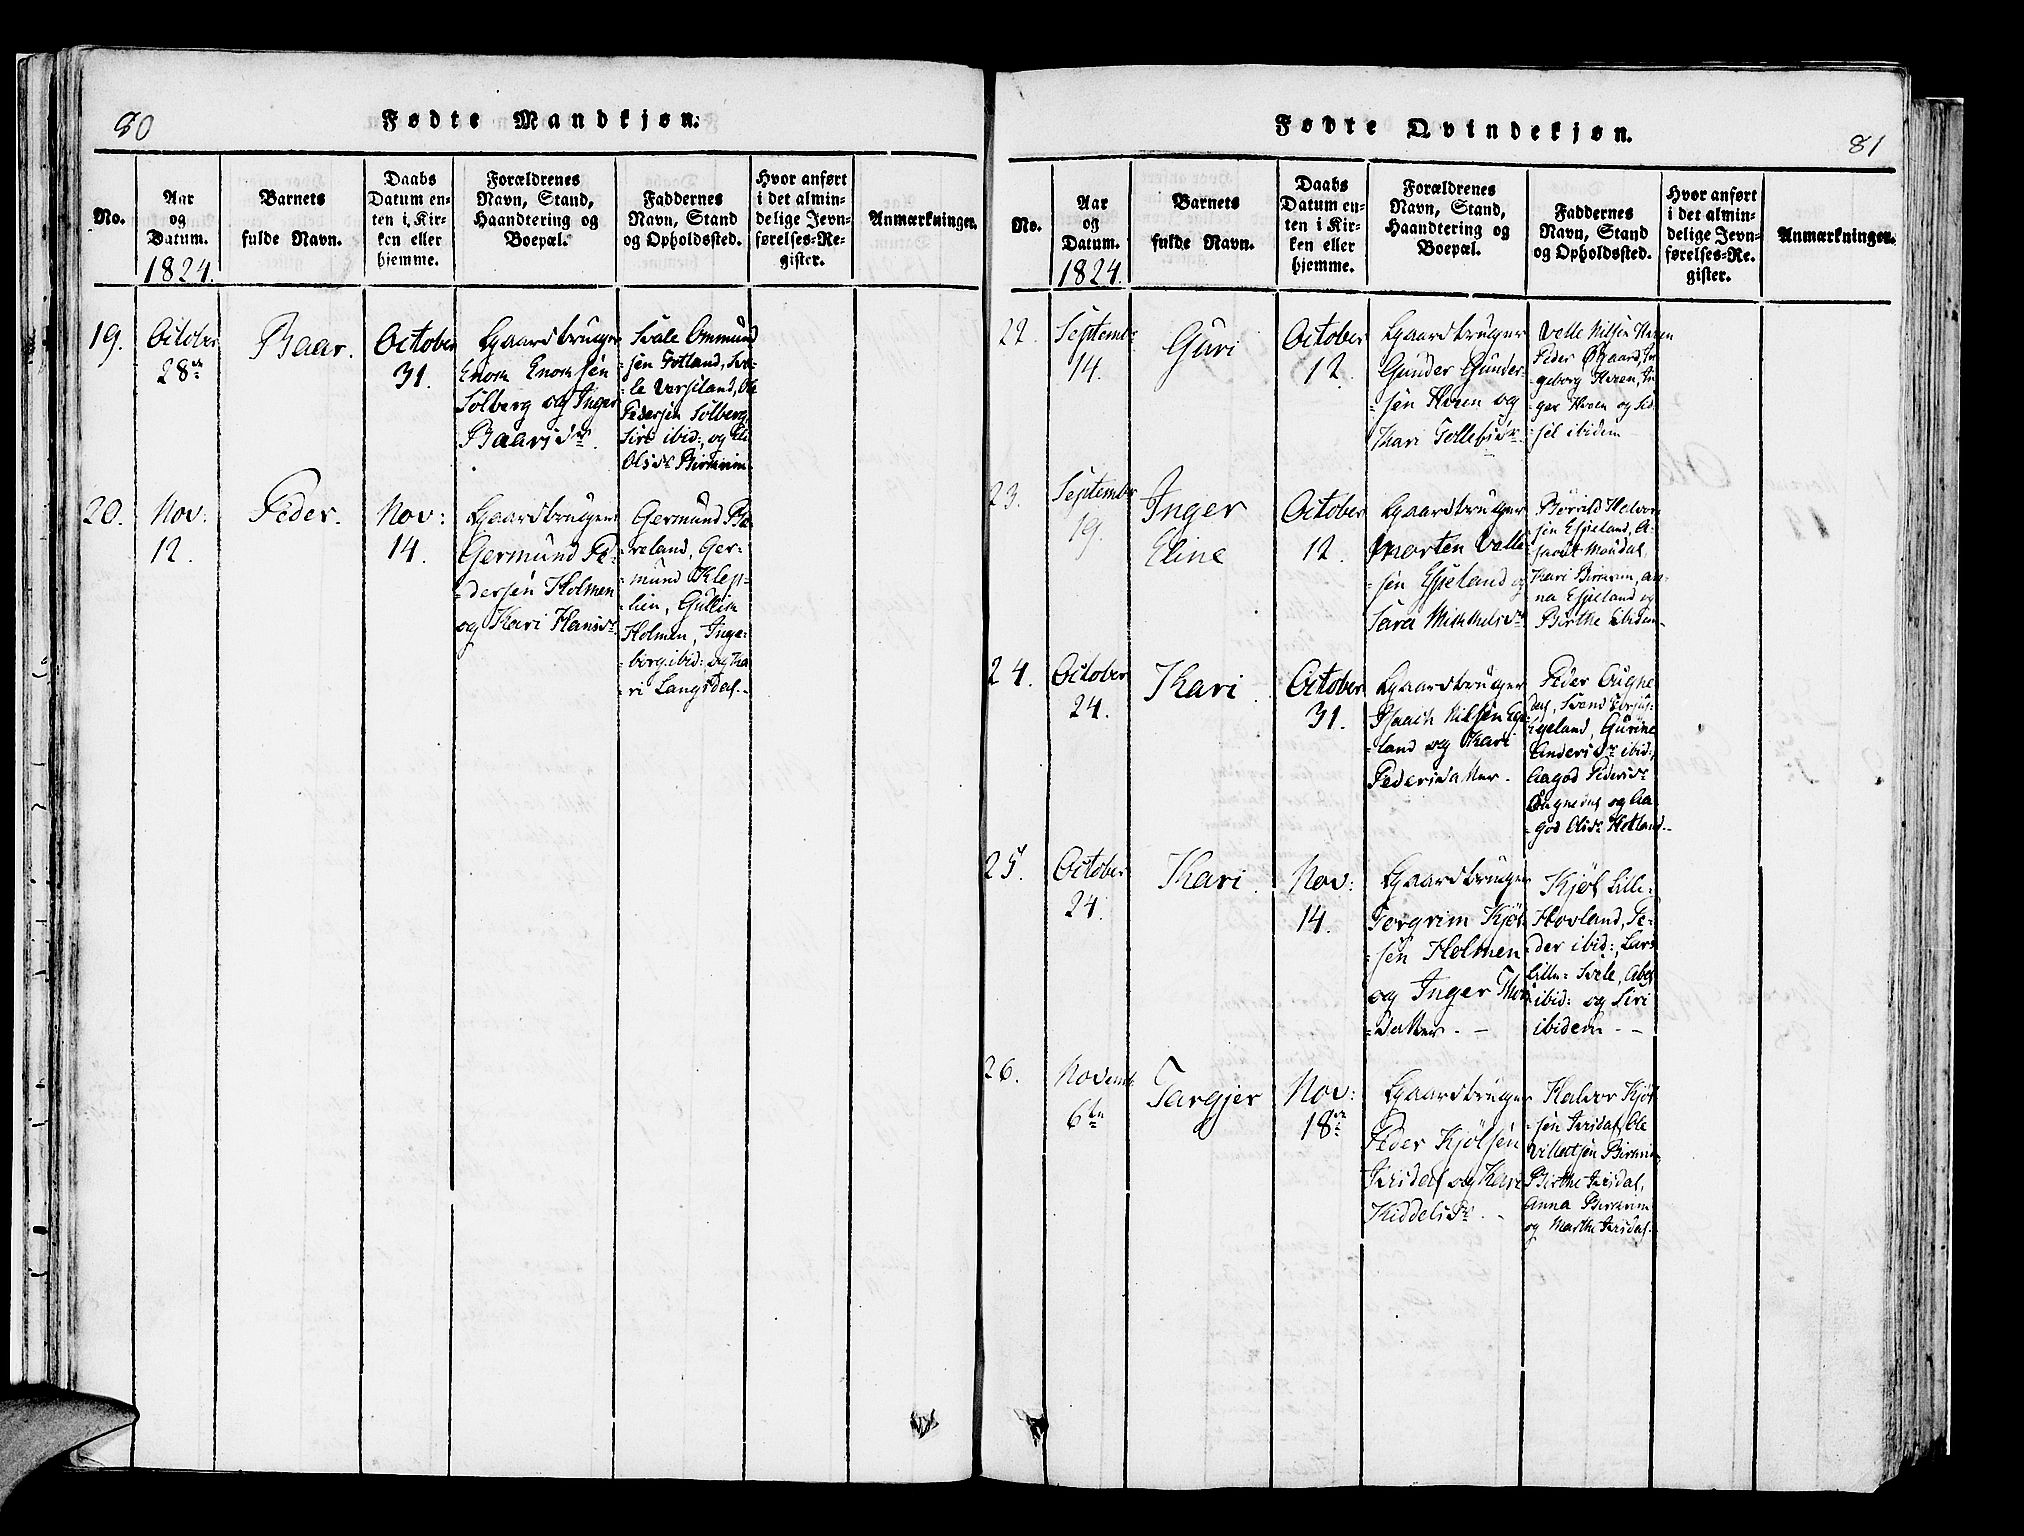 80
Fødte Mandkjøn.
No.
Aar
og
Datum.
1824.
Barnets
fulde Navn.
Daabs
Datum en-
ten i Kir-
ken eller
hjemme.
Forældrenes
Navn, Stand,
Haandtering og
Boepæl.
Faddernes
Navn, Stand
og Opholdssted.
Hvor anført
i det almin-
delige Jevn-
førelses-Re-
gister.
Anmærkninger.
19.
October
28de
Baar.
October
31.
Gaardbruger
Enok Enoksen
Solberg og Inger
Baarsdr
Svale Ommund
sen Gotland, Sva-
le Versland, Ole
Pedersen Solberg
Siri ibid:, og Eli
Olsdr Birkrim
20.
Nov:
12.
Peder.
Nov:
14.
Gaardbruger
Germund Pe-
dersen Holmen
og Kari Hansdr
Germund Bi-
reland, Ger-
mund Klep-
lien, Gullik
Holmen, Inge-
borg ibid: og Ka
ri Langsdal.
Fødte Qvindekjøn.
81
No.
Aar
og
Datum.
1824.
Barnets
fulde Navn.
Daabs
Datum en-
ten i Kir-
ken eller
hjemme.
Forældrenes
Navn, Stand,
Haandtering og
Boepæl.
Faddernes
Navn, Stand
og Opholdssted.
Hvor anført
i det almin-
delige Jevn-
førelses-Re-
gister.
Anmærkninger.
22.
Septembr
14.
Guri
October
12.
Gaardbruger
Gunder Gunder-
sen Hveen og
Kari Tollefsdr
Velle Nilsen Hveen
Peder Øgaard, In
geborg Hveen, In
ger Hveen og Sid
sel ibidem
23.
September
19.
Inger
Eline
October
12.
Gaardbruger
Morten Valle-
sen Espeland og
Sara Mikkelsdr
Børild Halvor
sen Espeland, A-
Maudal,
Kari Birkrim, an-
na Espeland og
Birthe ibidem
24.
October
24.
Kari
October
31.
Gaardbruger
Isaach Nilsen Ege
land og Kari
Pedersdatter.
Peder Øugne
dal, Svend
Egeland, Gurine
Andersdr ibid:,
Aagod Pedersdr
Øugnedal og Aa-
god Olsdr Hetland
25.
October
24.
Kari
Nov:
14.
Gaardbruger
Torgrim Kjøl
sen Holmen
og Inger Thors
datter
Kjøl Lille-
Hovland, Pe-
der ibid:, Lars
Lille-Svele, Abel
ibid: og Siri
ibidem
26.
Novemb:
6te
Targjer
Nov:
18de
Gaardbruger
Peder Kjølsen
Ivisdal og Kari
Kiddelsdr
Halvor Kjøl
sen Ivisdal, Ole
Villadsen Birkrim
Birthe Ivisdal,
Anna Birkrim
og Marthe Ivisdal.